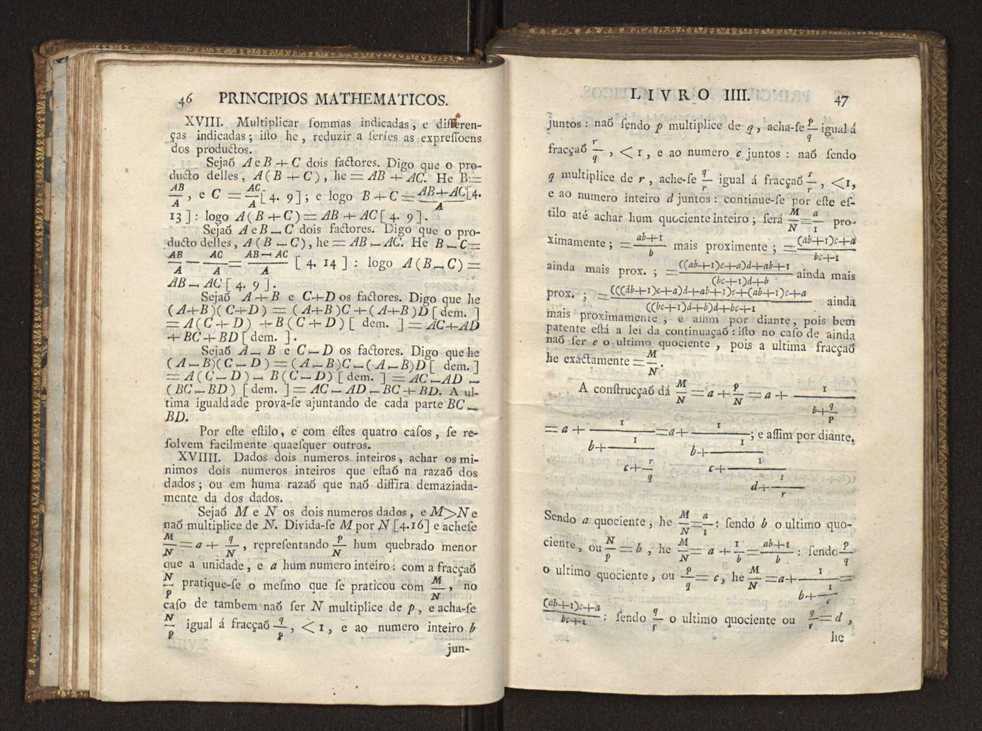 46 PRINCIPIOS MATHEMATICOS.
XVIII. Multiplicar ſommas indicadas, e differen-
ças indicadas; iſto he, reduzir a ſeries as expreſſoens
dos productos.
Sejaõ A e B + C dois factores. Digo que o pro-
ducto delles, A (B + C), he = AB + AC. He B =
AB/A, e C = AC/A [4. 9]; e logo B + C = AB+AC/A [4.
13]: logo A(B + C) = AB + AC [4. 9].
Sejaõ A e B — C dois factores. Digo que o pro-
ducto delles, A (B — C), he = AB — AC. He B — C =
AB/A — AC/A = AB—AC/A [4. 14]: logo A (B — C) =
AB — AC [4. 9].
Sejaõ A + B e C+D os factores. Digo que he
(A+B)(C+D) = (A+B)C + (A+B)D [dem.]
= A(C + D) + B(C + D) [dem.] = AC+AD
+ BC + BD [dem.].
Sejaõ A — B e C — D os factores. Digo que he
(A — B)(C — D) = (A — B)C — (A — B)D [dem.]
= A(C — D) — B(C — D) [dem.] = AC — AD —
(BC — BD) [dem.] = AC — AD — BC + BD. A ul-
tima igualdade prova-ſe ajuntando de cada parte BC —
BD.
Por eſte eſtilo, e com éſtes quatro caſos, ſe re-
ſolvem facilmente quaeſquer outros.
XVIIII. Dados dois numeros inteiros, achar os mi-
nimos dois numeros inteiros que eſtaõ na razaõ dos
dados; ou em huma razaõ que naõ diffira demaziada-
mente da dos dados.
Sejaõ M e N os dois numeros dados, e M>N e
naõ multiplice de N. Divida-ſe M por N [4.16] e acheſe
M/N = a + q/N, repreſentando p/N hum quebrado menor
que a unidade, e a hum numero inteiro: com a fracçaõ
N/p pratique-ſe o meſmo que ſe praticou com M/N, no
caſo de tambem naõ ſer N multiplice de p, e acha-ſe
N/p igual á fracçaõ q/p, < 1, e ao numero inteiro b
jun-
LIVRO IIII. 47
juntos: naõ ſendo p multiplice de q, acha-ſe p/q igual á
fracçaõ r/q, < 1, e ao numero c juntos: naõ ſendo
q multiplice de r, ache-ſe q/r igual á fracçaõ r/r, <1,
e ao numero inteiro d juntos: continue-ſe por eſte eſ-
tilo até achar hum quociente inteiro; ſerá M/N = a/1 pro-
ximamente; = ab+1/b mais proximente; = (ab+1)c+a/bc+1
ainda mais prox.; = ((ab+1)c+a)d+ab+1/(bc+1)d+b ainda mais
prox.; = (((ab+1)c+a)d+ab+1)c+(ab+1)c+a/((bc+1)d+b)d+bc+1 ainda
mais proximamente; e aſſim por diante, pois bem
patente eſtá a lei da continuaçaõ: iſto no caſo de ainda
naõ ſer e o ultimo quociente, pois a ultima fracçaõ
he exactamente = M/N.
A conſtrucçaõ dá M/N = a + p/N = a + 1/(b+q/p)
= a + 1/(b+1/(c+r/q)) = a + 1/(b+1/(c+1/(d+1/r))); e aſſim por diante.
Sendo a quociente, he M/N = a/1: ſendo b o ultimo quo-
ciente, ou N/p = b, he M/N = a + 1/b = ab+1/b: ſendo p/q
o ultimo quociente, ou p/q = c, he M/N = a + 1/(b+1/c) =
(ab+1)c+a/bc+1: ſendo q/r o ultimo quociente ou q/r = d,
he